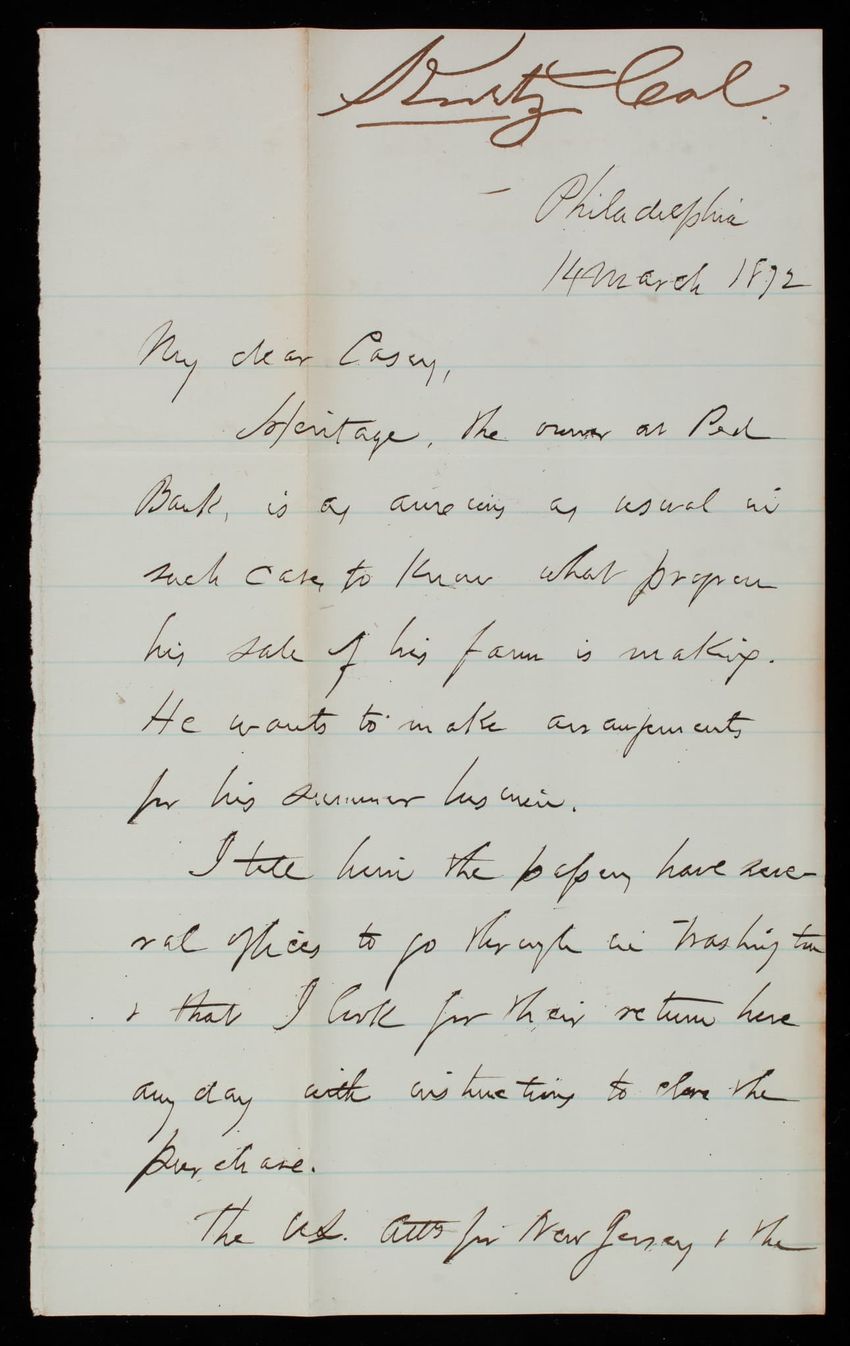 Kurtz Col.
Philadelphia
14 March 1872
My dear Casey,
Heritage, the owner at Red
Bank, is as anxious as usual in
such cases to know what progress
his sale of his farm is making.
He wants to make arrangements
for his summer business.
I tell him the papers have seve-
ral offices to go through in Washington
& that I look for their return here
any day with instructions to close the
purchase.
The U.S. Atty for New Jersey & the